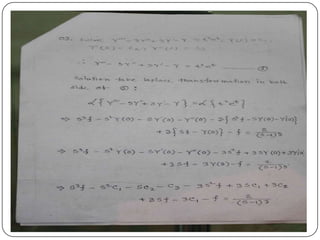 Y''' - 3Y'' + 3Y' - Y = t²eᵗ
∴ Y''' - 3Y'' + 3Y' - Y = t²eᵗ
Solution: take laplace transformation in both
side of ①:
⇒ s³f - s²Y(0) - sY'(0) - Y''(0) - 3{s²f - sY(0) - Y'(0)}
+ 3{sf - Y(0)} - f = 2/(s-1)³
⇒ s³f - s²Y(0) - sY'(0) - Y''(0) - 3s²f + 3sY(0) + 3Y'(0)
+ 3sf - 3Y(0) - f = 2/(s-1)³
⇒ s³f - s²C₁ - sC₂ - C₃ - 3s²f + 3sC₁ + 3C₂
+ 3sf - 3C₁ - f = 2/(s-1)³